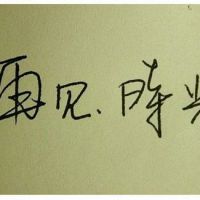 再见.時光